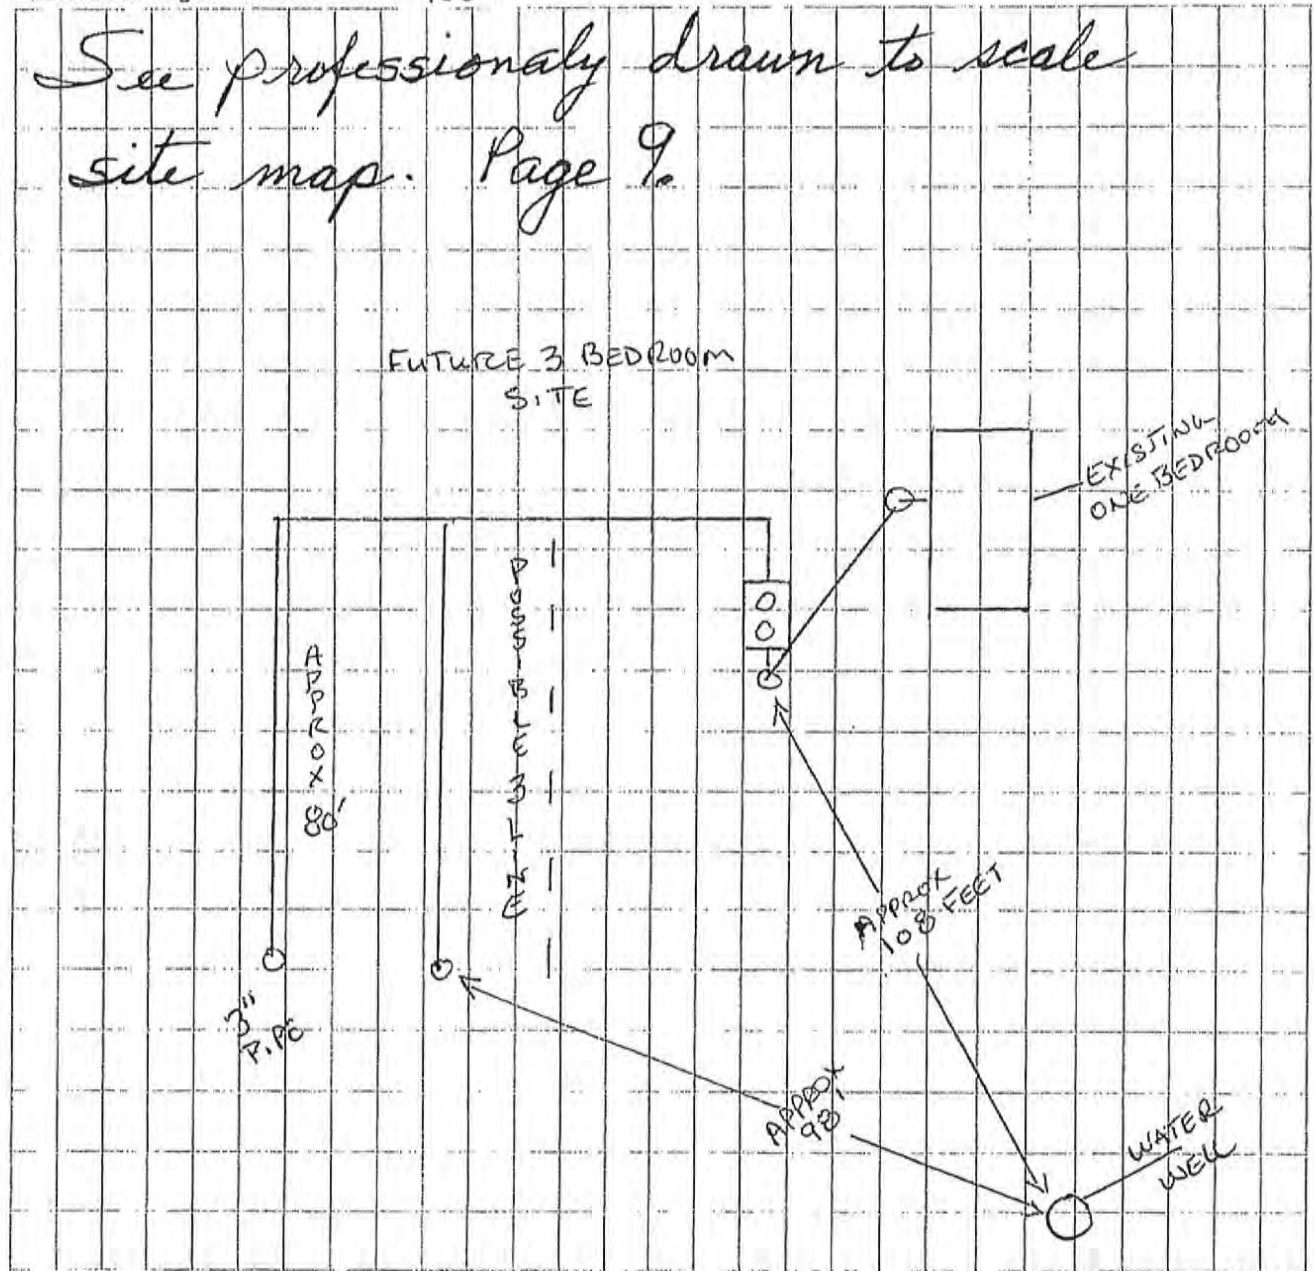 See professionaly drawn to scale
site map. Page 9.
FUTURE 3 BEDROOM
SITE
EXISTING
ONE BEDROOM
POSSIBLE 3 LINE
APPROX 80'
APPROX
108 FEET
3"
P.PE
APPROX
98'
WATER
WELL